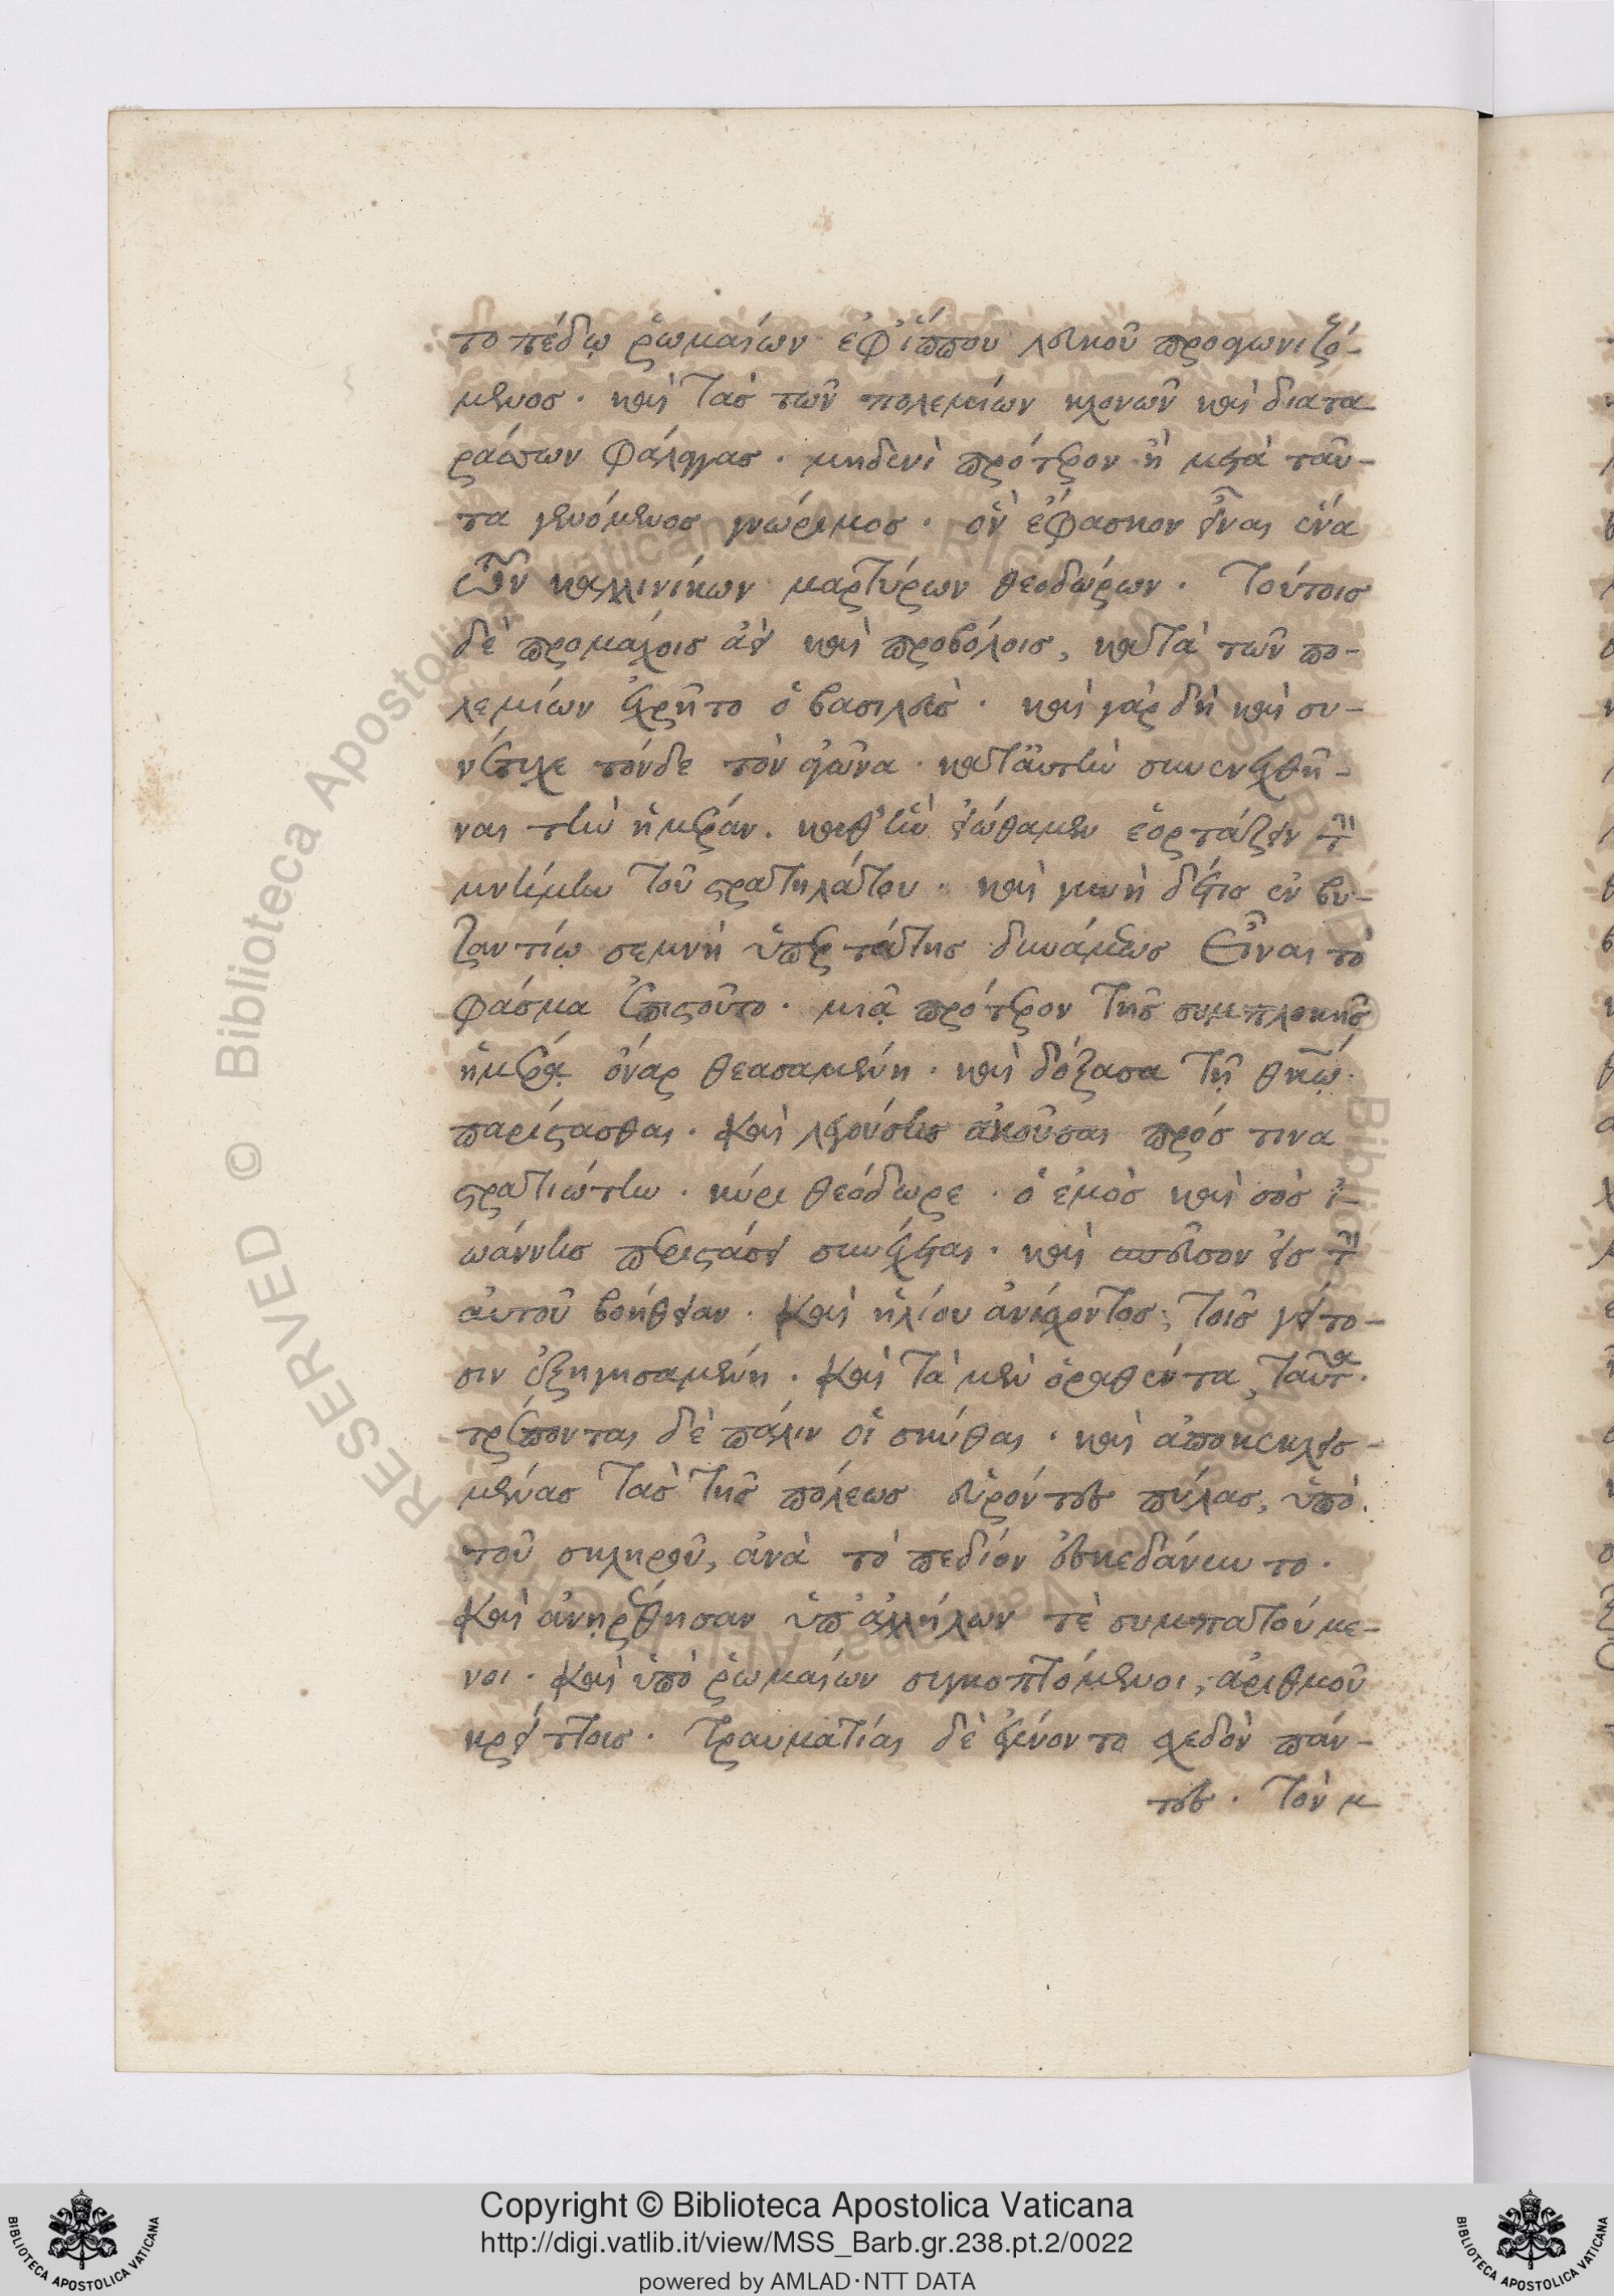 τοπέδῳ ῥωμαίων ἐφ ἵππου λευκοῦ προαγωνιζό-
μενος · καὶ τὰς τῶν πολεμίων κλονῶν καὶ διατα-
ράττων φάλαγγας · μηδενὶ πρότερον ἢ μετὰ ταῦ-
τα γενόμενος γνώριμος · ὃν ἔφασκον εἶναι ἕνα
τῶν καλλινίκων μαρτύρων θεοδώρων · Τούτοις
δὲ προμάχοις ἀεὶ καὶ προβόλοις, κατὰ τῶν πο-
λεμίων ἐχρῆτο ὁ βασιλεὺς · καὶ γὰρ δὴ καὶ συ-
νέτυχε τόνδε τὸν ἀγῶνα · κατ' αὐτὴν συνενεχθῆ-
ναι τὴν ἡμέραν. καθ' ἣν εἰώθαμεν ἑορτάζειν τὴν
μνήμην τοῦ στρατηλάτου · καὶ γυνὴ δέ τις ἐν βυ-
ζαντίῳ σεμνὴ ὑπερτάτης δυνάμεως εἶναι τὸ
φάσμα ἐπιστοῦτο · μιᾷ πρότερον τῆς συμπλοκῆς
ἡμέρᾳ ὄναρ θεασαμένη · καὶ δόξασα τῇ θκῷ
παρίστασθαι · καὶ λεγούσης ἀκοῦσαι πρός τινα
στρατιώτην · κύρι θεόδωρε · ὁ ἐμὸς καὶ σὸς ἰ-
ωάννης περιστάσει συνέχεται · καὶ σπεῦσον εἰς τὴν
αὐτοῦ βοήθειαν · καὶ ἡλίου ἀνίσχοντος, τοῖς γείτο-
σιν ἐξηγησαμένη · καὶ τὰ μὲν ὁραθέντα, ταῦτα ·
τρέπονται δὲ πάλιν οἱ σκύθαι · καὶ ἀποκεκλεισ-
μένας τὰς τῆς πόλεως εὑρόντες πύλας, ὑπὸ
τοῦ σκληροῦ, ἀνὰ τὸ πεδίον ἐσκεδάννυντο ·
καὶ ἀνῃρέθησαν ὑπ' ἀλλήλων τὲ συμπατούμε-
νοι · καὶ ὑπὸ ῥωμαίων συγκοπτόμενοι, ἀριθμοῦ
κρείττοις · Τραυματίαι δὲ ἐγένοντο σχεδὸν πάν-
τες · Τὸν μ